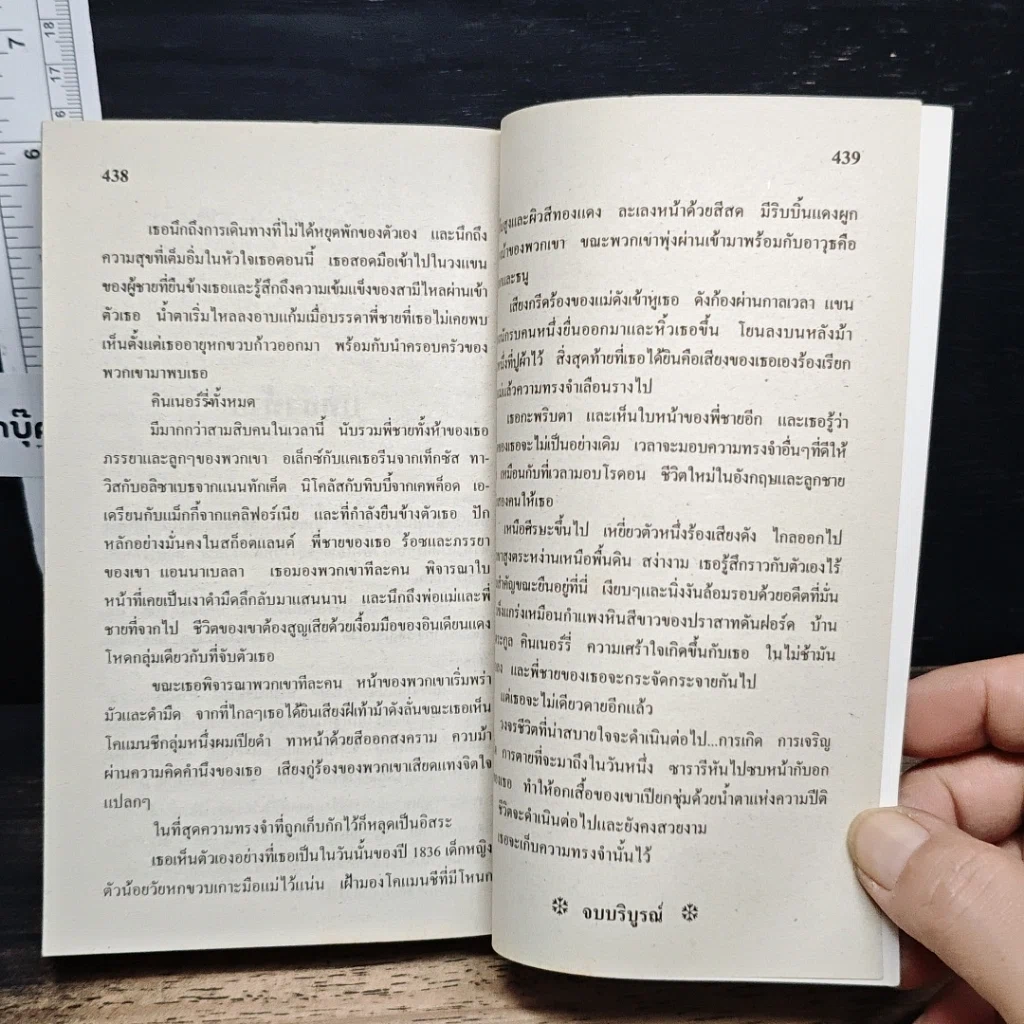 7
6
18
17
438
เธอนึกถึงการเดินทางที่ไม่ได้หยุดพักของตัวเอง และนึกถึง
ความสุขที่เต็มอิ่มในหัวใจเธอตอนนี้ เธอสอดมือเข้าไปในวงแขน
ของผู้ชายที่ยืนข้างเธอและรู้สึกถึงความเข้มแข็งของสามีไหลผ่านเข้า
ตัวเธอ น้ำตาเริ่มไหลลงอาบแก้มเมื่อบรรดาพี่ชายที่เธอไม่เคยพบ
เห็นตั้งแต่เธออายุหกขวบก้าวออกมา พร้อมกับนำครอบครัวของ
พวกเขามาพบเธอ
คินเนอร์รี่ทั้งหมด
มีมากกว่าสามสิบคนในเวลานี้ นับรวมพี่ชายทั้งห้าของเธอ
ภรรยาและลูกๆของพวกเขา อเล็กซ์กับแคเธอรีนจากเท็กซัส ทา-
วิสกับอลิซาเบธจากแนนทักเค็ต นิโคลัสกับทิบบี้จากเคพค็อด เอ-
เดรียนกับแม็กกี้จากแคลิฟอร์เนีย และที่กำลังยืนข้างตัวเธอ ปัก
หลักอย่างมั่นคงในสก็อตแลนด์ พี่ชายของเธอ ร้อซและภรรยา
ของเขา แอนนาเบลลา เธอมองพวกเขาทีละคน พิจารณาใบ
หน้าที่เคยเป็นเงาดำมืดลึกลับมาแสนนาน และนึกถึงพ่อแม่และพี่
ชายที่จากไป ชีวิตของเขาต้องสูญเสียด้วยเงื้อมมือของอินเดียนแดง
โหดกลุ่มเดียวกับที่จับตัวเธอ
ขณะเธอพิจารณาพวกเขาทีละคน หน้าของพวกเขาเริ่มพร่า
มัวและดำมืด จากที่ไกลๆเธอได้ยินเสียงฝีเท้าม้าดังลั่นขณะเธอเห็น
โคแมนชีกลุ่มหนึ่งผมเปียดำ ทาหน้าด้วยสีออกสงคราม ควบม้า
ผ่านความคิดคำนึงของเธอ เสียงกู่ร้องของพวกเขาเสียดแทงจิตใจ
แปลกๆ
ในที่สุดความทรงจำที่ถูกเก็บกักไว้ก็หลุดเป็นอิสระ
เธอเห็นตัวเองอย่างที่เธอเป็นในวันนั้นของปี 1836 เด็กหญิง
ตัวน้อยวัยหกขวบเกาะมือแม่ไว้แน่น เฝ้ามองโคแมนชีที่มีโหนก
439
สูงและผิวสีทองแดง ละเลงหน้าด้วยสีสด มีริบบิ้นแดงผูก
ของพวกเขา ขณะพวกเขาพุ่งผ่านเข้ามาพร้อมกับอาวุธคือ
และธนู
เสียงกรีดร้องของแม่ดังเข้าหูเธอ ดังก้องผ่านกาลเวลา แขน
นักรบคนหนึ่งยื่นออกมาและหิ้วเธอขึ้น โยนลงบนหลังม้า
ที่ปูผ้าไว้ สิ่งสุดท้ายที่เธอได้ยินคือเสียงของเธอเองร้องเรียก
แล้วความทรงจำเลือนรางไป
เธอกะพริบตา และเห็นใบหน้าของพี่ชายอีก และเธอรู้ว่า
ของเธอจะไม่เป็นอย่างเดิม เวลาจะมอบความทรงจำอื่นๆที่ดีให้
เหมือนกับที่เวลามอบโรดอน ชีวิตใหม่ในอังกฤษและลูกชาย
คนให้เธอ
เหนือศีรษะขึ้นไป เหยี่ยวตัวหนึ่งร้องเสียงดัง ไกลออกไป
สูงตระหง่านเหนือพื้นดิน สง่างาม เธอรู้สึกราวกับตัวเองไร้
ขณะยืนอยู่ที่นี่ เงียบๆและนิ่งงันล้อมรอบด้วยอดีตที่มั่น
แกร่งเหมือนกำแพงหินสีขาวของปราสาทดันฟอร์ด บ้าน
คินเนอร์รี่ ความเศร้าใจเกิดขึ้นกับเธอ ในไม่ช้ามัน
และพี่ชายของเธอจะกระจัดกระจายกันไป
แต่เธอจะไม่เดียวดายอีกแล้ว
วงจรชีวิตที่น่าสบายใจจะดำเนินต่อไป...การเกิด การเจริญ
การตายที่จะมาถึงในวันหนึ่ง ซารารีหันไปซบหน้ากับอก
ทำให้อกเสื้อของเขาเปียกชุ่มด้วยน้ำตาแห่งความปีติ
ชีวิตจะดำเนินต่อไปและยังคงสวยงาม
เธอจะเก็บความทรงจำนั้นไว้
จบบริบูรณ์